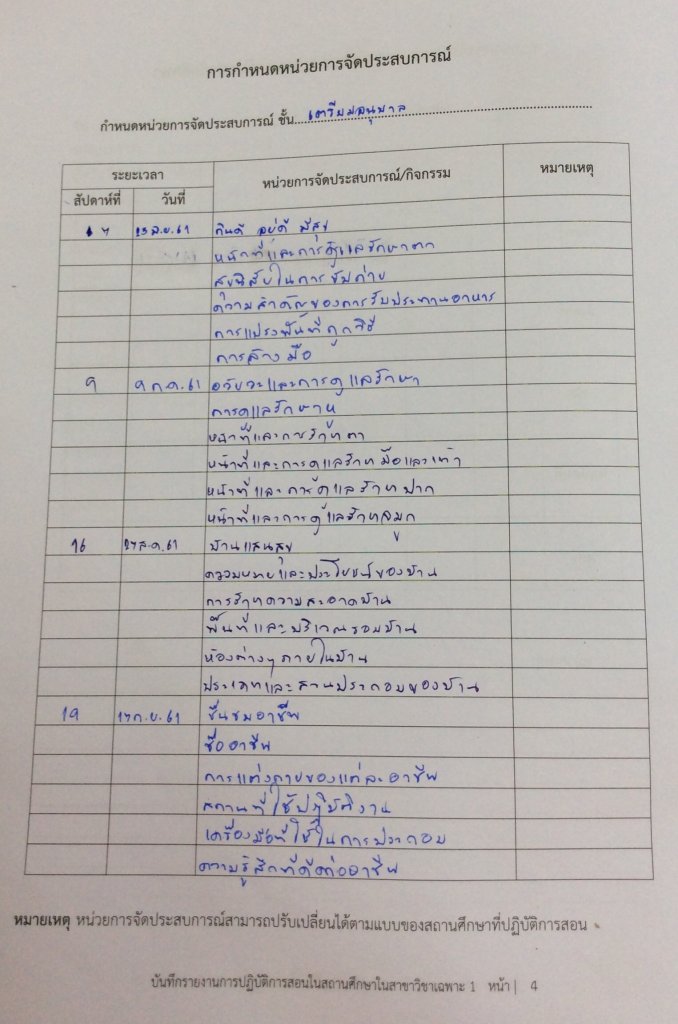 การกำหนดหน่วยการจัดประสบการณ์
กำหนดหน่วยการจัดประสบการณ์ ชั้น เตรียมอนุบาล
ระยะเวลา หน่วยการจัดประสบการณ์/กิจกรรม หมายเหตุ
สัปดาห์ที่ วันที่
กินดี อยู่ดี มีสุข
หน้าที่และการดูแลรักษา
สุขนิสัยในการขับถ่าย
ความสำคัญของการรับประทานอาหาร
การแปรงฟันที่ถูกวิธี
การล้างมือ
9 9 ก.ค.61 อวัยวะและการดูแลรักษา
การดูแลรักษาหู
หน้าที่และการรักษาตา
หน้าที่และการดูแลรักษามือและเท้า
หน้าที่และการดูแลรักษาปาก
หน้าที่และการดูแลรักษาจมูก
16 27 ส.ค.61 บ้านแสนสุข
ความหมายและประโยชน์ของบ้าน
การรักษาความสะอาดบ้าน
พื้นที่และบริเวณรอบบ้าน
ห้องต่างๆภายในบ้าน
ประเภทและส่วนประกอบของบ้าน
19 17 ก.ย.61 ชื่นชมอาชีพ
ชื่ออาชีพ
การแต่งกายของแต่ละอาชีพ
สถานที่ใช้ปฏิบัติงาน
เครื่องมือที่ใช้ในการประกอบ
ความรู้สึกที่ดีต่ออาชีพ
หมายเหตุ หน่วยการจัดประสบการณ์สามารถปรับเปลี่ยนได้ตามแบบของสถานศึกษาที่ปฏิบัติการสอน
บันทึกรายงานการปฏิบัติการสอนในสถานศึกษาในสาขาวิชาเฉพาะ 1 หน้า | 4